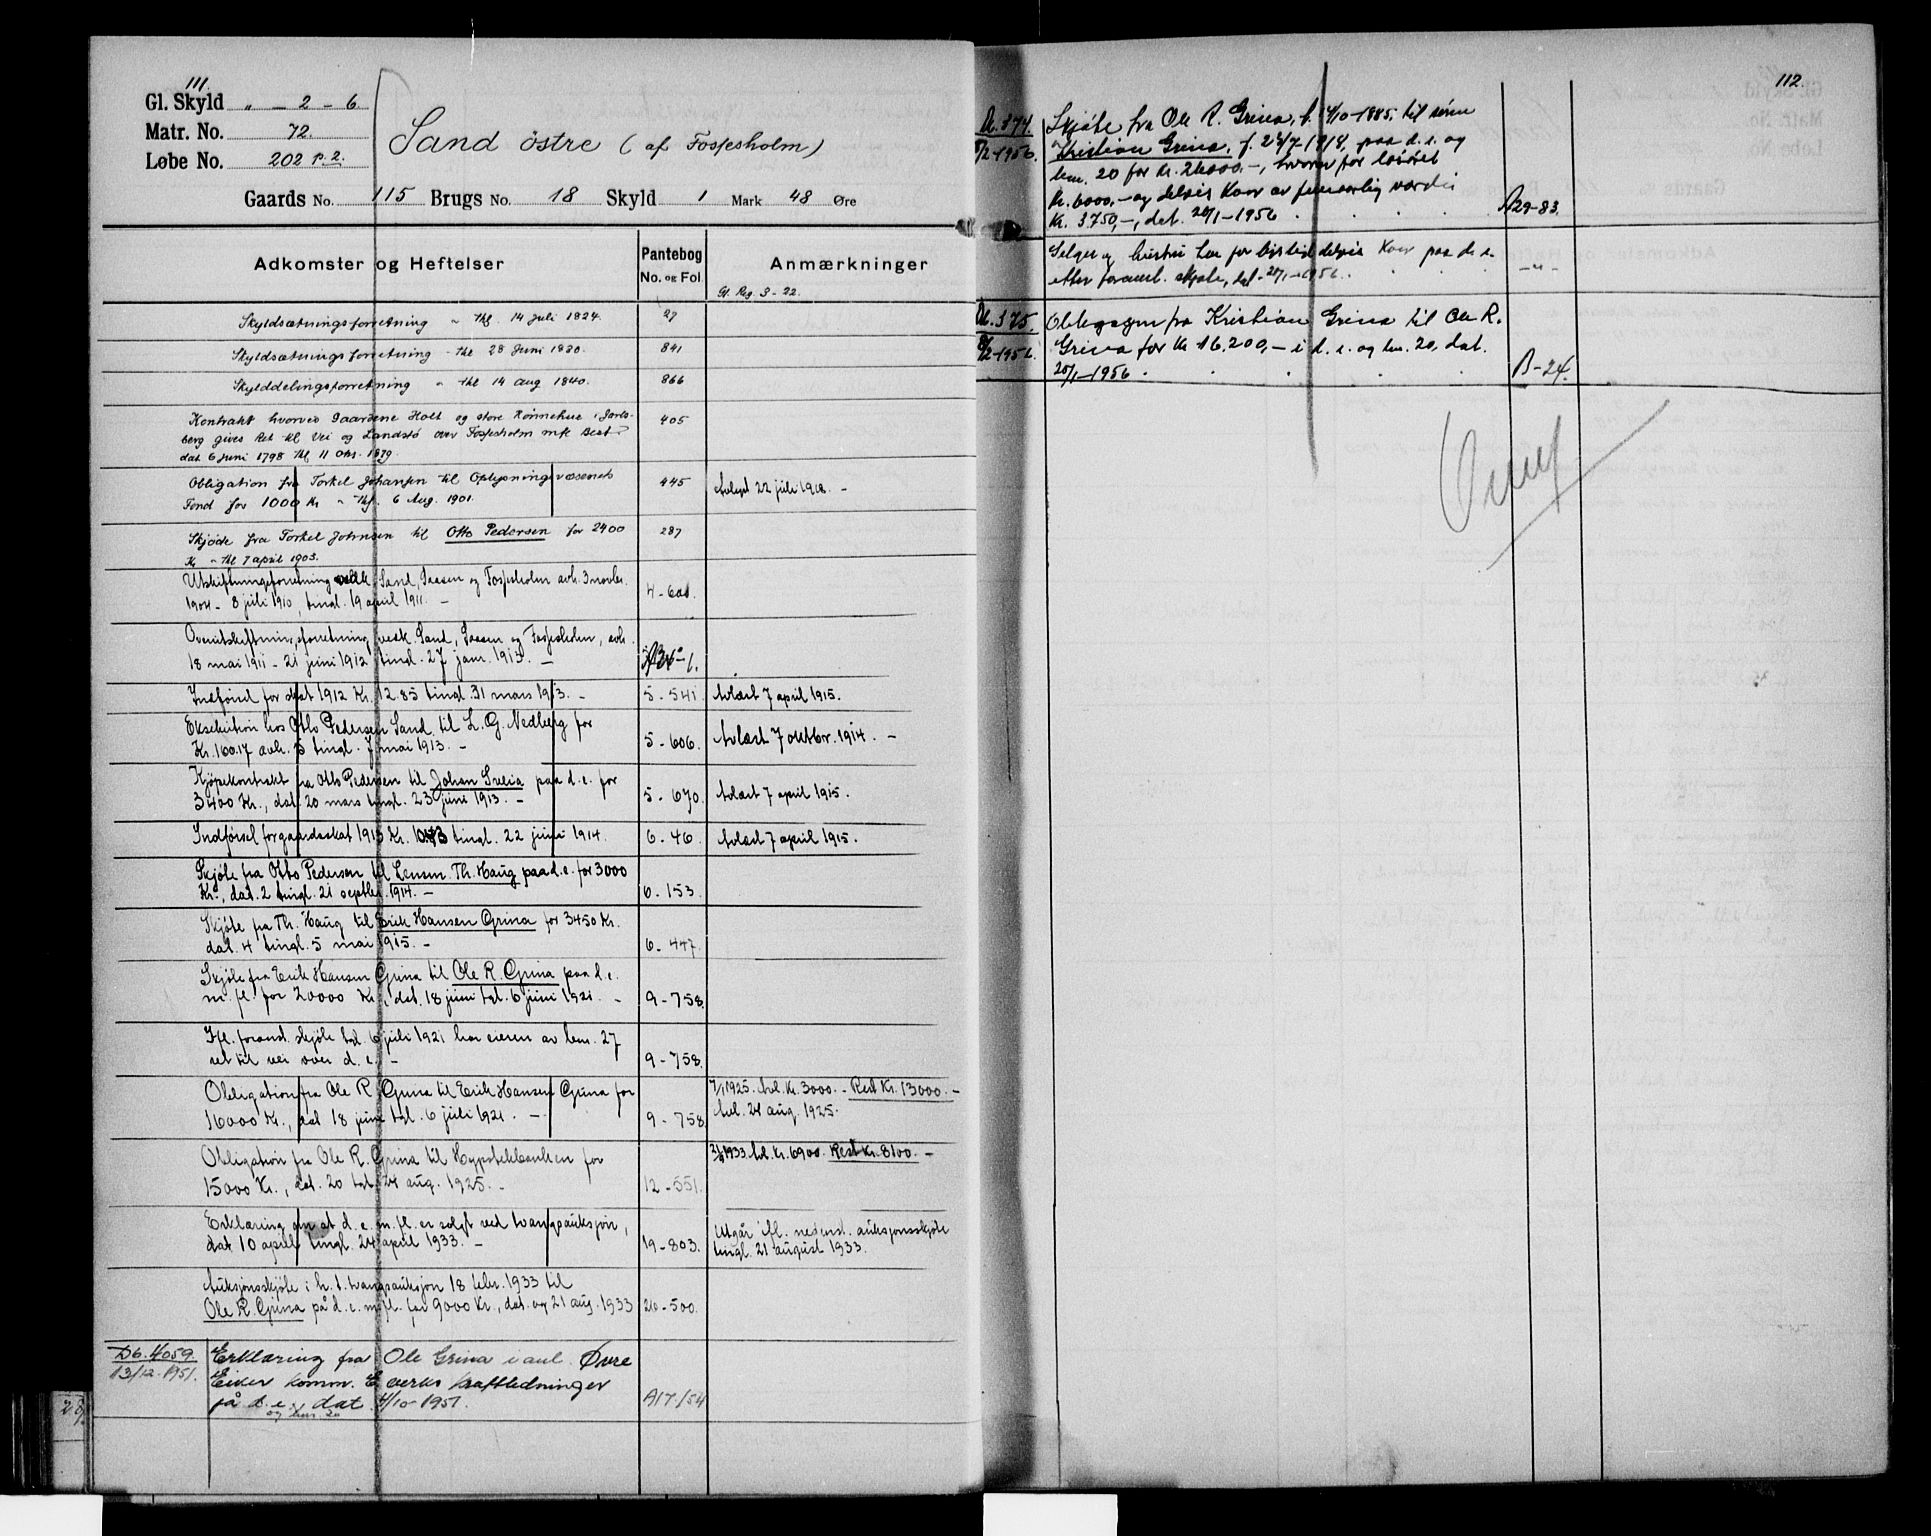 111.
Gl. Skyld " - 2 - 6
Matr. No. 72.
Løbe No. 202 p. 2.
Sand östre (af Fossesholm)
Gaards No. 115 Brugs No. 18 Skyld 1 Mark 48 Øre
Adkomster og Heftelser
Pantebog
No. og Fol.
Anmærkninger
Gl. Reg. 3 - 22.
Skyldsætningsforretning - thl. 14 Juli 1824. 27
Skyldsætningsforretning - thl 28 Juni 1830. 841
Skylddelingsforretning - thl 14 Aug 1840. 866
Kontrakt hvorved Gaardene Holt og store Rönnehue i Jarls- 405
berg gives Ret til Vei og Landstö over Fossesholm mfl Best
dat 6 Juni 1798 thl 11 Okt. 1879.
Obligation fra Torkel Johansen til Oplysningsvæsenets 445 Avlyst 22 juli 1918. -
Fond for 1000 Kr - thl. 6 Aug. 1901.
Skjöde fra Torkel Johnsen til Otto Pedersen for 2400 287
Kr - thl 7 april 1903.
Utskiftningsforretning vedk. Sand, Aasen og Fossesholm avh. 3 novbr. 4-601
1904 - 8 juli 1910, tingl. 19 april 1911. -
Overutskiftningsforretning vedk. Sand, Aasen og Fossesholm, avh.
18 mai 1911 - 21 juni 1912 tingl. 27 janr. 1913. -
Indförsel for skat 1912 Kr. 12.85 tingl. 31 mars 1913. - 5 - 541. Avlæst 7 april 1915.
Eksekution hos Otto Pedersen Sand til L. G. Nedberg for
Kr. 160.17 avh. 5 tingl. 7 mai 1913. - 5 - 606. Avlæst 7 oktbr. 1914. -
Kjöpekontrakt fra Otto Pedersen til Johan Svelia paa d. e. for
3400 Kr., dat. 20 mars tingl. 23 juni 1913. - 5 - 670. Avlæst 7 april 1915.
Indförsel for gaardsskat 1913 Kr. tingl. 22 juni 1914. 6 - 46. Avlæst 7 april 1915.
Skjöte fra Otto Pedersen til Lensm. Th. Haug paa d. e. for 3000
Kr., dat. 2 tingl. 21 septbr. 1914. - 6 - 153.
Skjöte fra Th. Haug til Erik Hansen Grina for 3450 Kr.
dat. 4 tingl. 5 mai 1915. - 6 - 447.
Skjöte fra Erik Hansen Grina til Ole R. Grina paa d. e.
m. fl. for 20000 Kr., dat. 18 juni tgl. 6 juni 1921. - 9 - 758.
Ifl. forand. skjöte tgl. 6 juli 1921 har eieren av brn. 27
ret til vei over d. e. - 9 - 758.
Obligation fra Ole R. Grina til Erik Hansen Grina for 7/1 1925. Avl. Kr. 3000. - Rest Kr. 13000. -
16000 Kr., dat 18 juni tgl. 6 juli 1921. - 9 - 758 Avl. 24 aug. 1925.
Obligation fra Ole R. Grina til Hypotekbanken for 1933. Avl. Kr. 6900. Rest Kr. 8100. -
15000 Kr., dat. 20 tgl. 24 aug. 1925. - 12 - 551.
Erklæring om at d. e. m. fl. er solgt ved tvangsauksjon, Utgår ifl. nedenst. auksjonsskjöte
dat 10 april tingl. 24 april 1933. - 19 - 803. tingl. 21 august 1933.
Auksjonsskjöte i h. t. tvangsauksjon 18 febr. 1933 til
Ole R. Grina på d. e. m. fl. for 9000 Kr., dat. og 21 aug. 1933 20 - 500.
Db. 4059. Erklæring fra Ole Grina i anl. Øvre
13/12-1951. Eiker komm. E. verks kraftledninger
på d. e. dat. 4/10-1951. A17/54
og brn. 20
112.
Skjöte fra Ole R. Grina, f. 4/10-1885, til sönn
Kristian Grina, f. 28/7 1918, paa d. e. og
brn. 20 for kr. 26000.-, hvorav for lösöret
kr. 6000,- og delvis Kaar av femaarlig verdi
kr. 3750,-, dat. 20/1-1956 A29-83.
Selger og hustru har for livstid delvis Kaar paa d. e.
etter foranst. skjöte, dat. 20/1-1956. - " -
Db. 375. Obligasjon fra Kristian Grina til Ole R.
Grina for kr 16.200,- i d. e. og brn. 20, dat.
20/1-1956 B-24.